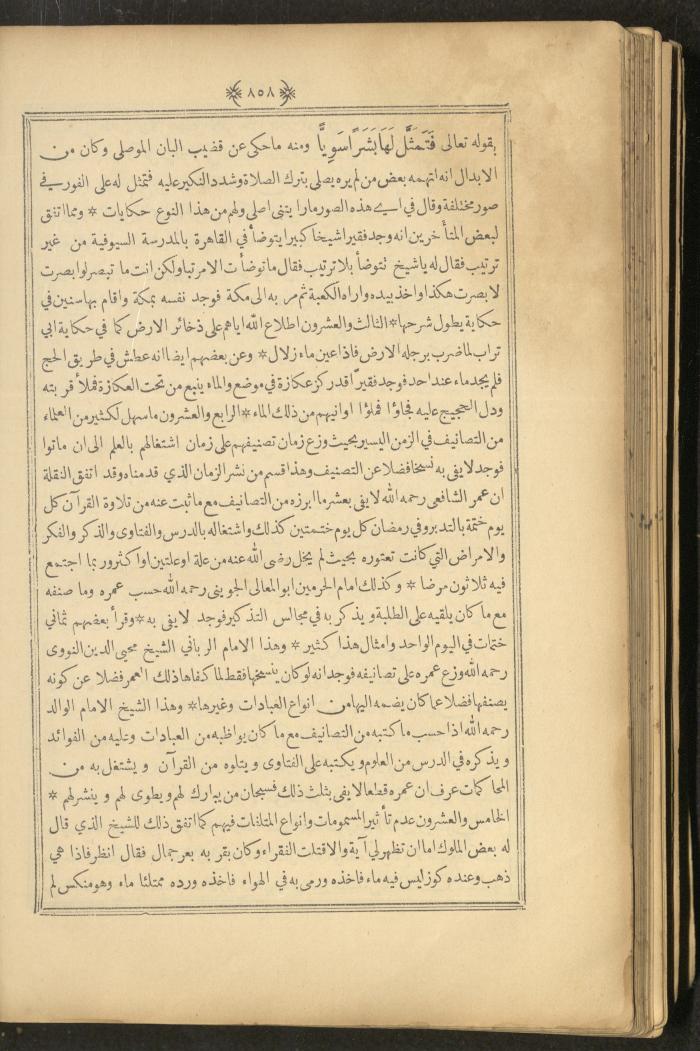 ٨٥٨
بقوله تعالى فَتَمَثَّلَ لَهَا بَشَرًا سَوِيًّا ومنه ماحكى عن قضيب البان الموصلى وكان من
الابدال انه اتهمه بعض من لم يره يصلى بترك الصلاة وشدد النكير عليه فتمثل له على الفور في
صور مختلفة وقال في اي هذه الصور مارايتنى اصلى ولهم من هذا النوع حكايات * ومما اتفق
لبعض المتأخرين انه وجد فقيرا شيخا كبيرا يتوضأ في القاهرة بالمدرسة السيوفية من غير
ترتيب فقال له ياشيخ تتوضأ بلا ترتيب فقال ماتوضأت الامرتبا ولكن انت ما تبصر لوا بصرت
لا بصرت هكذا واخذ بيده واراه الكعبة ثم مر به الى مكة فوجد نفسه بمكة واقام بها سنين في
حكاية يطول شرحها * الثالث والعشرون اطلاع الله اياهم على ذخائر الارض كما في حكاية ابي
تراب لما ضرب برجله الارض فاذا عين ماء زلال * وعن بعضهم ايضا انه عطش في طريق الحج
فلم يجد ماء عند احد فوجد فقيراً قد ركز عكازة في موضع والماء ينبع من تحت العكازة فملأ قربته
ودل الحجيج عليه فجاؤا فملؤا اوانيهم من ذلك الماء * الرابع والعشرون ماسهل لكثير من العلماء
من التصانيف في الزمن اليسير بحيث وزع زمان تصنيفهم على زمان اشتغالهم بالعلم الى ان ماتوا
فوجد لايفى به نسخا فضلا عن التصنيف وهذا قسم من نشر الزمان الذي قدمناه وقد اتفق النقلة
ان عمر الشافعى رحمه الله لايفى بعشر ما ابرزه من التصانيف مع ماثبت عنه من تلاوة القرآن كل
يوم ختمة بالتدبر وفي رمضان كل يوم ختمتين كذلك واشتغاله بالدرس والفتاوى والذكر والفكر
والامراض التي كانت تعتوره بحيث لم يخل رضى الله عنه من علة اوعلتين اواكثر وربما اجتمع
فيه ثلاثون مرضا * وكذلك امام الحرمين ابوالمعالى الجوينى رحمه الله حسب عمره وما صنفه
مع ماكان يلقيه على الطلبة ويذكر به في مجالس التذكير فوجد لايفى به * وقرأ بعضهم ثماني
ختمات في اليوم الواحد وامثال هذا كثير * وهذا الامام الرباني الشيخ محيى الدين النووى
رحمه الله وزع عمره على تصانيفه فوجد انه لوكان ينسخها فقط لما كفاها ذلك العمر فضلا عن كونه
يصنفها فضلا عما كان يضمه اليها من انواع العبادات وغيرها * وهذا الشيخ الامام الوالد
رحمه الله اذا حسب ماكتبه من التصانيف مع ماكان يواظبه من العبادات ويمليه من الفوائد
ويذكره في الدرس من العلوم ويكتبه على الفتاوى ويتلوه من القرآن ويشتغل به من
المحاكمات عرف ان عمره قطعا لايفى بثلث ذلك فسبحان من يبارك لهم ويطوى لهم وينشر لهم *
الخامس والعشرون عدم تأثير المسمومات وانواع المتلفات فيهم كما اتفق ذلك للشيخ الذي قال
له بعض الملوك اما ان تظهر لي آية والاقتلت الفقراء وكان بقربه بعر جمال فقال انظر فاذا هي
ذهب وعنده كوز ليس فيه ماء فاخذه ورمى به في الهواء فاخذه ورده ممتلئا ماء وهو منكس لم